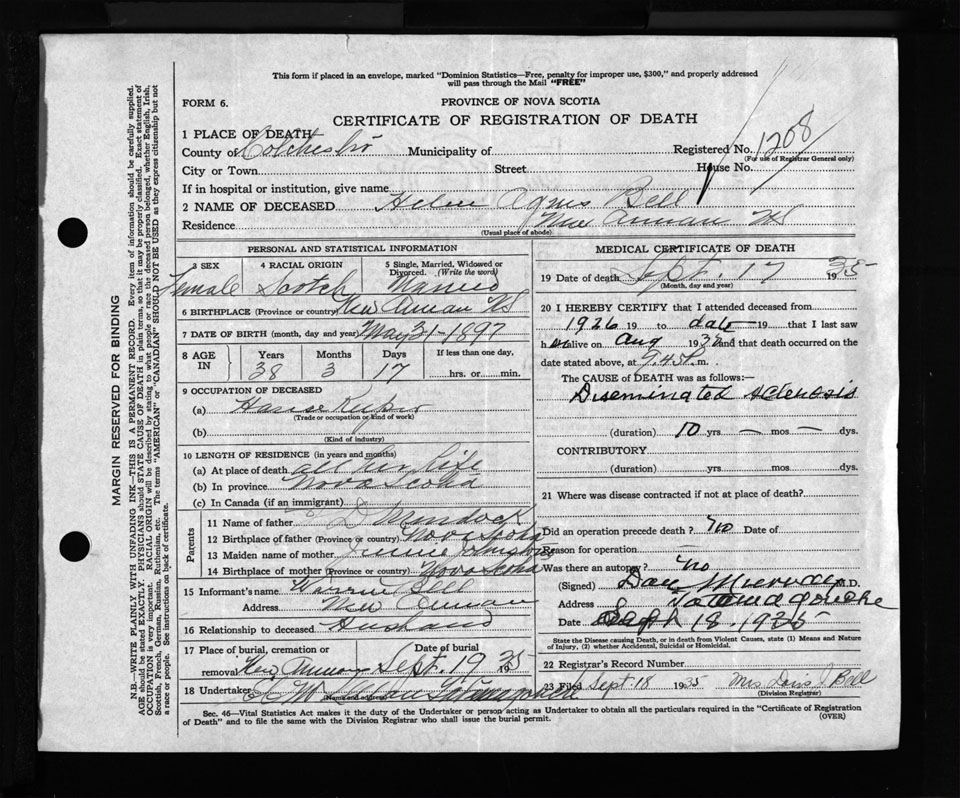 This form if placed in an envelope, marked "Dominion Statistics—Free, penalty for improper use, $300," and properly addressed
will pass through the Mail "FREE"
FORM 6.
PROVINCE OF NOVA SCOTIA
CERTIFICATE OF REGISTRATION OF DEATH
1 PLACE OF DEATH
County of Colchester Municipality of Registered No. 1208
(For use of Registrar General only)
City or Town Street House No.
If in hospital or institution, give name
2 NAME OF DECEASED Helen Agnes Bell
Residence New Annan NS
(Usual place of abode)
PERSONAL AND STATISTICAL INFORMATION
3 SEX 4 RACIAL ORIGIN 5 Single, Married, Widowed or
Divorced. (Write the word)
Female Scotch Married
6 BIRTHPLACE (Province or country) New Annan NS
7 DATE OF BIRTH (month, day and year) May 31-1897
8 AGE IN Years Months Days If less than one day,
38 3 17 hrs. or min.
9 OCCUPATION OF DECEASED
(a) House Keeper
(Trade or occupation or kind of work)
(b)
(Kind of industry)
10 LENGTH OF RESIDENCE (in years and months)
(a) At place of death all her life
(b) In province Nova Scotia
(c) In Canada (if an immigrant)
Parents
11 Name of father D Murdock
12 Birthplace of father (Province or country) Nova Scotia
13 Maiden name of mother Johnston
14 Birthplace of mother (Province or country) Nova Scotia
15 Informant's name Bell
Address New Annan
16 Relationship to deceased Husband
17 Place of burial, cremation or Date of burial
removal New Annan Sept. 19 1935
18 Undertaker
(Name and address)
MEDICAL CERTIFICATE OF DEATH
19 Date of death Sept. 17 1935
(Month, day and year)
20 I HEREBY CERTIFY that I attended deceased from
1926 19 to date 19 that I last saw
h er alive on Aug 193 and that death occurred on
date stated above, at 9.45 P. m.
The CAUSE of DEATH was as follows:—
Diseminated sclerosis
(duration) 10 yrs — mos — dys.
CONTRIBUTORY
(duration) yrs. mos. dys.
21 Where was disease contracted if not at place of death?
Did an operation precede death? no Date of
Reason for operation
Was there an autopsy? no
(Signed) Dan Murray M.D.
Address Tatamagouche
Date Sept 18. 1935
State the Disease causing Death, or in death from Violent Causes, state (1) Means and Nature
of Injury, (2) whether Accidental, Suicidal or Homicidal.
22 Registrar's Record Number
23 Filed Sept. 18 1935 Mrs Lois J. Bell
(Division Registrar)
Sec. 46—Vital Statistics Act makes it the duty of the Undertaker or person acting as Undertaker to obtain all the particulars required in the "Certificate of Registration
of Death" and to file the same with the Division Registrar who shall issue the burial permit. (OVER)
MARGIN RESERVED FOR BINDING
N.B.—WRITE PLAINLY WITH UNFADING INK—THIS IS A PERMANENT RECORD. Every item of information should be carefully supplied.
AGE should be stated EXACTLY. PHYSICIANS should STATE CAUSE OF DEATH in plain terms, so that it may be properly classified. Exact statement of
OCCUPATION is very important. RACIAL ORIGIN will be described by stating to what people or race the deceased person belonged, whether English, Irish,
Scottish, French, German, Russian, Ruthenian, etc. The terms "AMERICAN" or "CANADIAN" SHOULD NOT BE USED as they express citizenship but not
a race or people. See instructions on back of certificate.